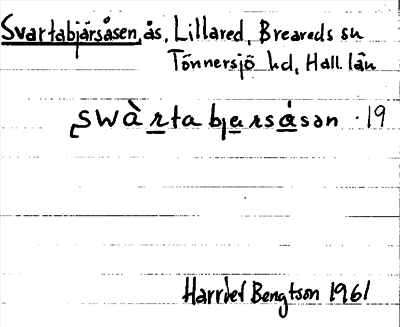 Svartabjärsåsen, ås, Lillared, Breareds sn
Tönnersjö hd, Hall. län
swàrtabjersåsən · 19
Harriet Bengtson 1961